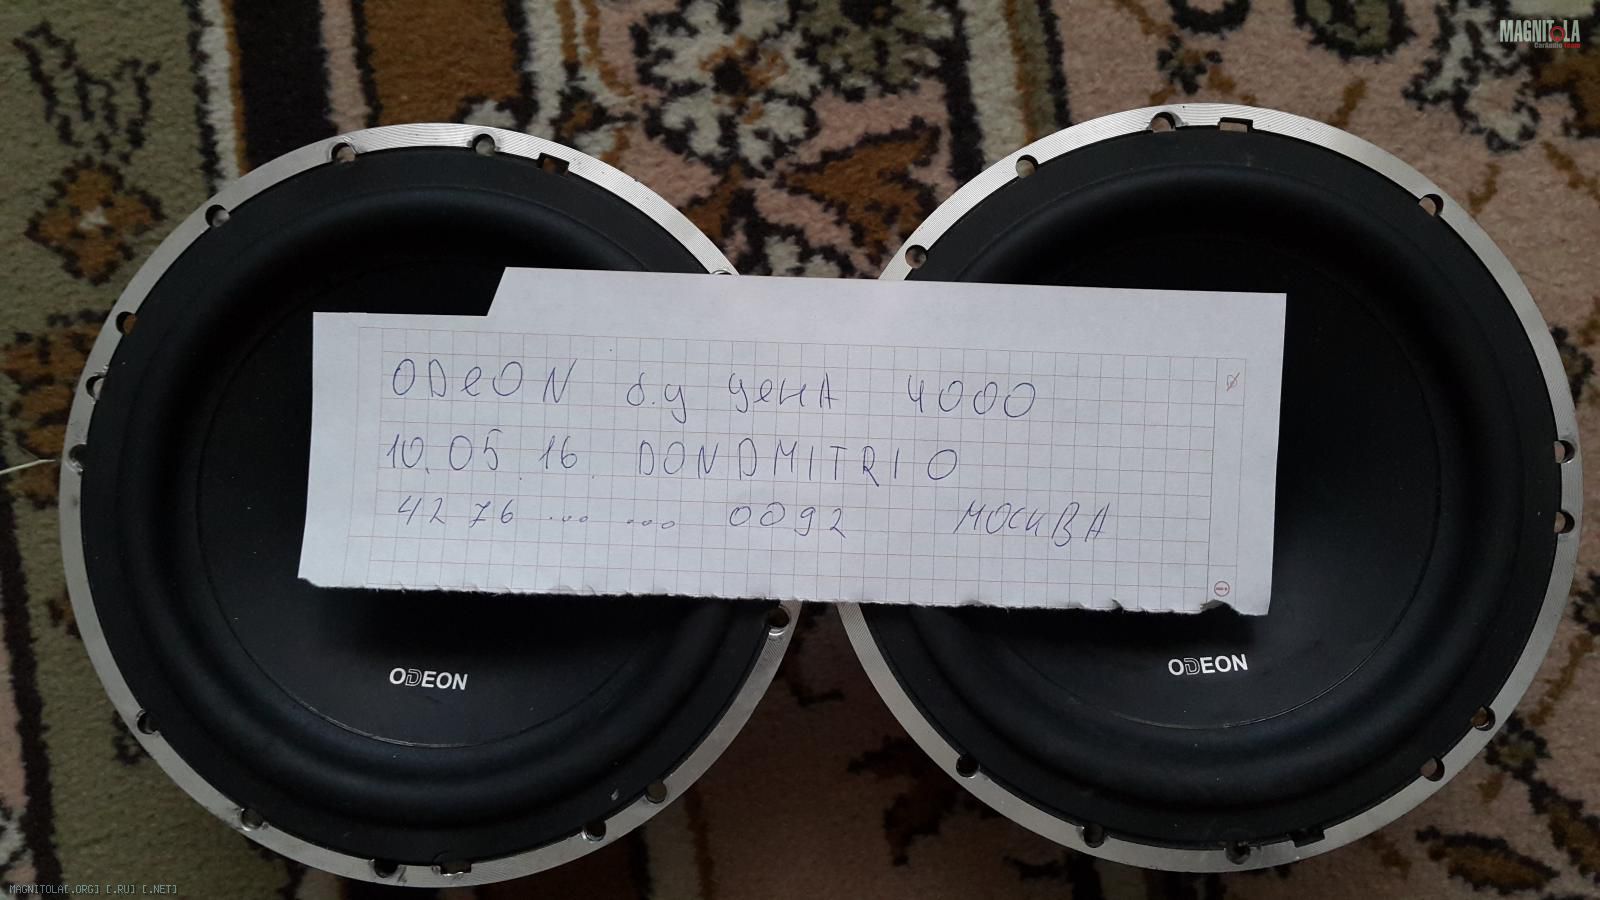 MAGNITOLA
CarAudio team
ODeON б.у цена 4000
10.05.16. DONDMITRIO
4276 ... ... 0092 МОСКВА
ODEON
ODEON
MAGNITOLA[.ORG] [.RU] [.NET]